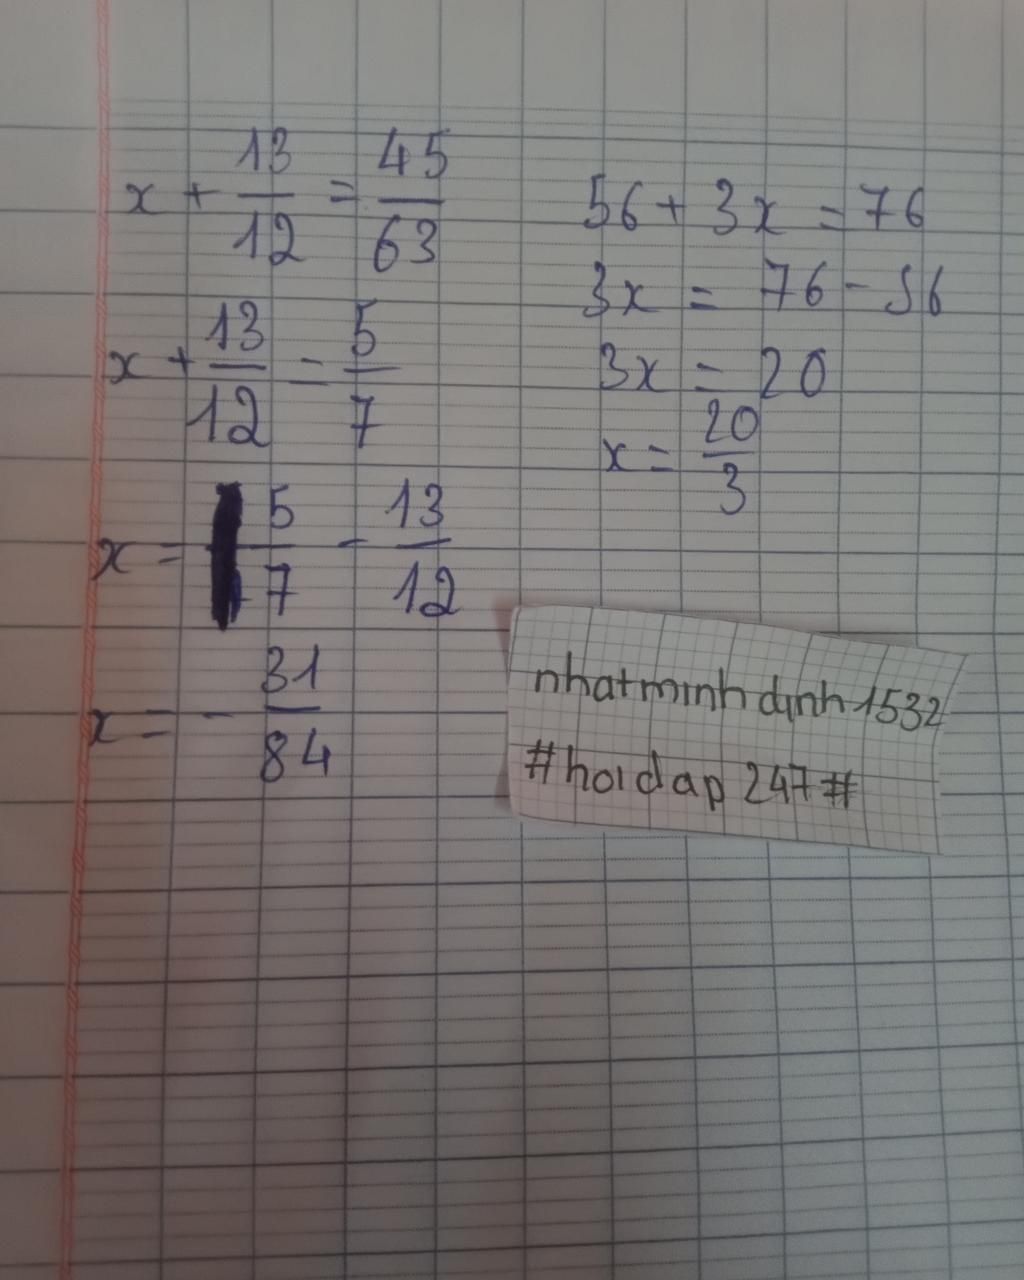 x + 13/12 = 45/63
x + 13/12 = 5/7
x = 5/7 - 13/12
x = - 31/84
56 + 3x = 76
3x = 76 - 56
3x = 20
x = 20/3
nhatminhdinh1532
#hoidap247#